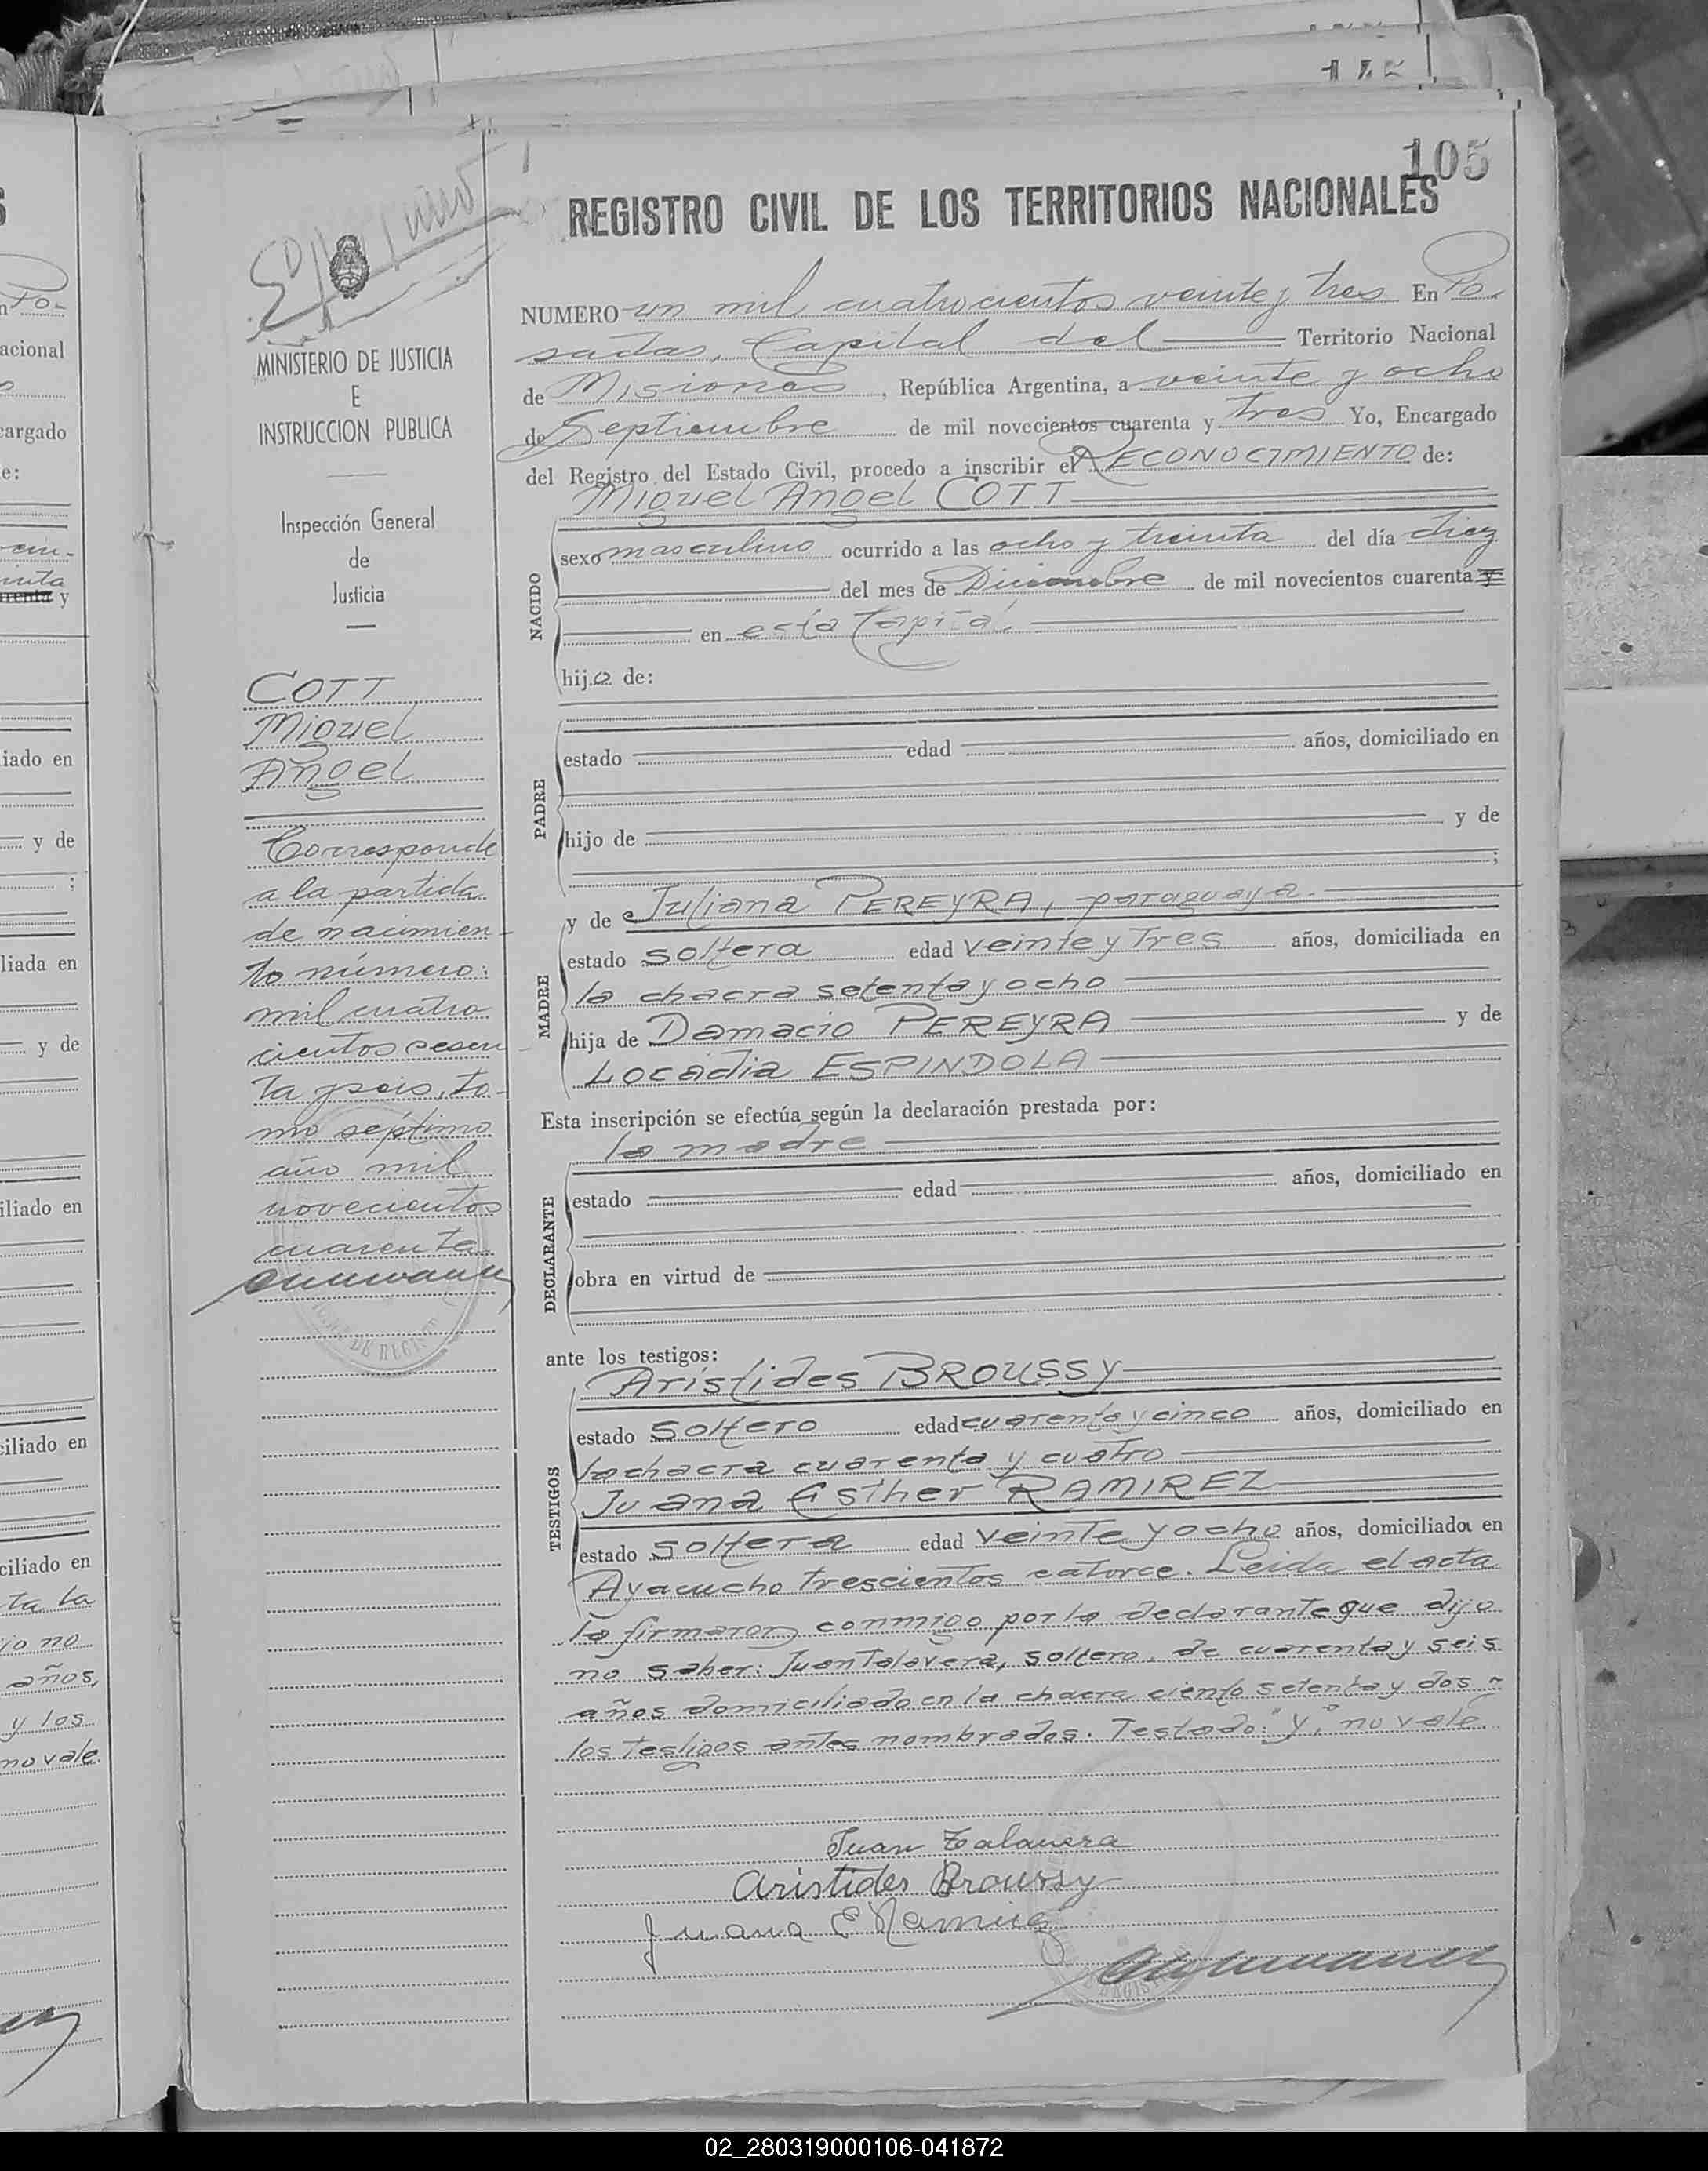 105
REGISTRO CIVIL DE LOS TERRITORIOS NACIONALES
MINISTERIO DE JUSTICIA
E
INSTRUCCION PUBLICA
Inspección General
de
Justicia
COTT
Miguel
Angel
Corresponde
a la partida
de nacimien-
to número:
mil cuatro
cientos sesen-
ta y seis, to-
mo séptimo
año mil
novecientos
cuarenta
NUMERO un mil cuatrocientos veinte y tres En Po-
sadas, Capital del Territorio Nacional
de Misiones, República Argentina, a veinte y ocho
de Septiembre de mil novecientos cuarenta y tres Yo, Encargado
del Registro del Estado Civil, procedo a inscribir el RECONOCIMIENTO de:
NACIDO
Miguel Angel COTT
sexo masculino ocurrido a las ocho y treinta del día diez
del mes de Diciembre de mil novecientos cuarenta y
en esta Capital
hijo de:
PADRE
estado edad años, domiciliado en
hijo de y de
;
MADRE
y de Juliana PEREYRA, paraguaya
estado soltera edad veinte y Tres años, domiciliada en
la chacra setenta y ocho
hija de Damacio PEREYRA y de
Locadia ESPINDOLA
Esta inscripción se efectúa según la declaración prestada por:
la madre
DECLARANTE
estado edad años, domiciliado en
obra en virtud de
ante los testigos:
TESTIGOS
Aristides BROUSSY
estado soltero edad cuarenta y cinco años, domiciliado en
la chacra cuarenta y cuatro
Juana Esther RAMIREZ
estado soltera edad veinte y ocho años, domiciliada en
Ayacucho trescientos catorce. Leida el acta
la firmaron conmigo por la declarante que dijo
no saber: Juan Talavera, soltero, de cuarenta y seis
años domiciliado en la chacra ciento setenta y dos
los testigos antes nombrados. Testado: "y", no vale.
Juan Talavera
Aristides Broussy
Juana E Ramirez
02_280319000106-041872